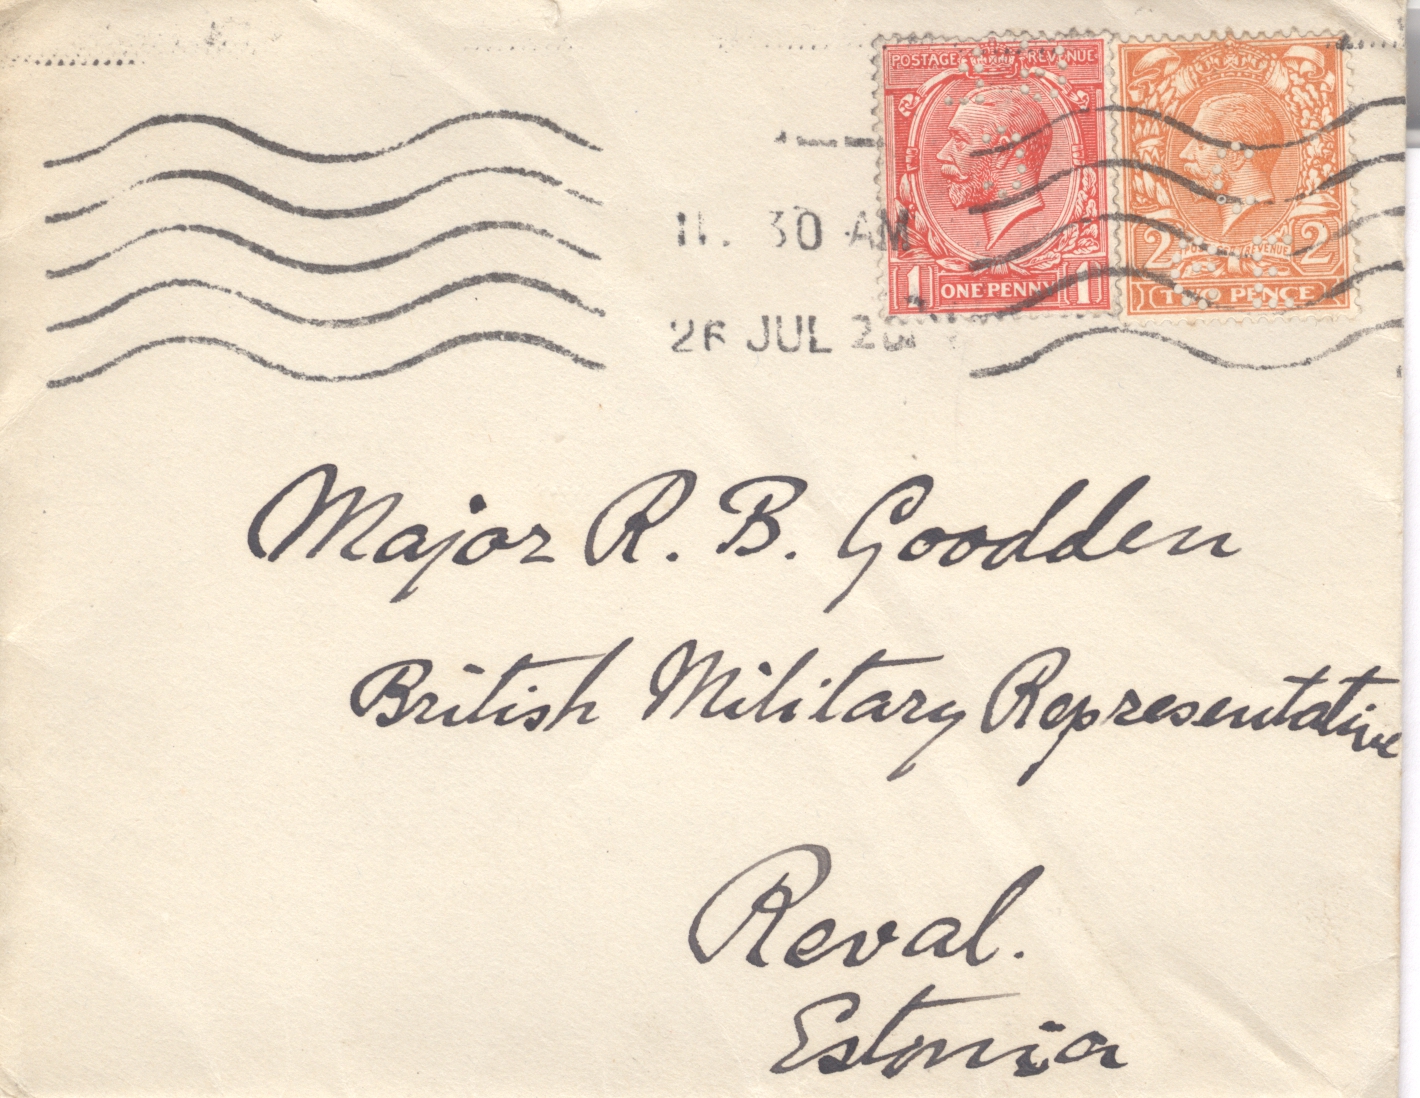 POSTAGE REVENUE
1 ONE PENNY 1
2 POSTAGE REVENUE 2
TWO PENCE
11. 30 AM
26 JUL 20
Major R. B. Goodden
British Military Representative
Reval.
Estonia